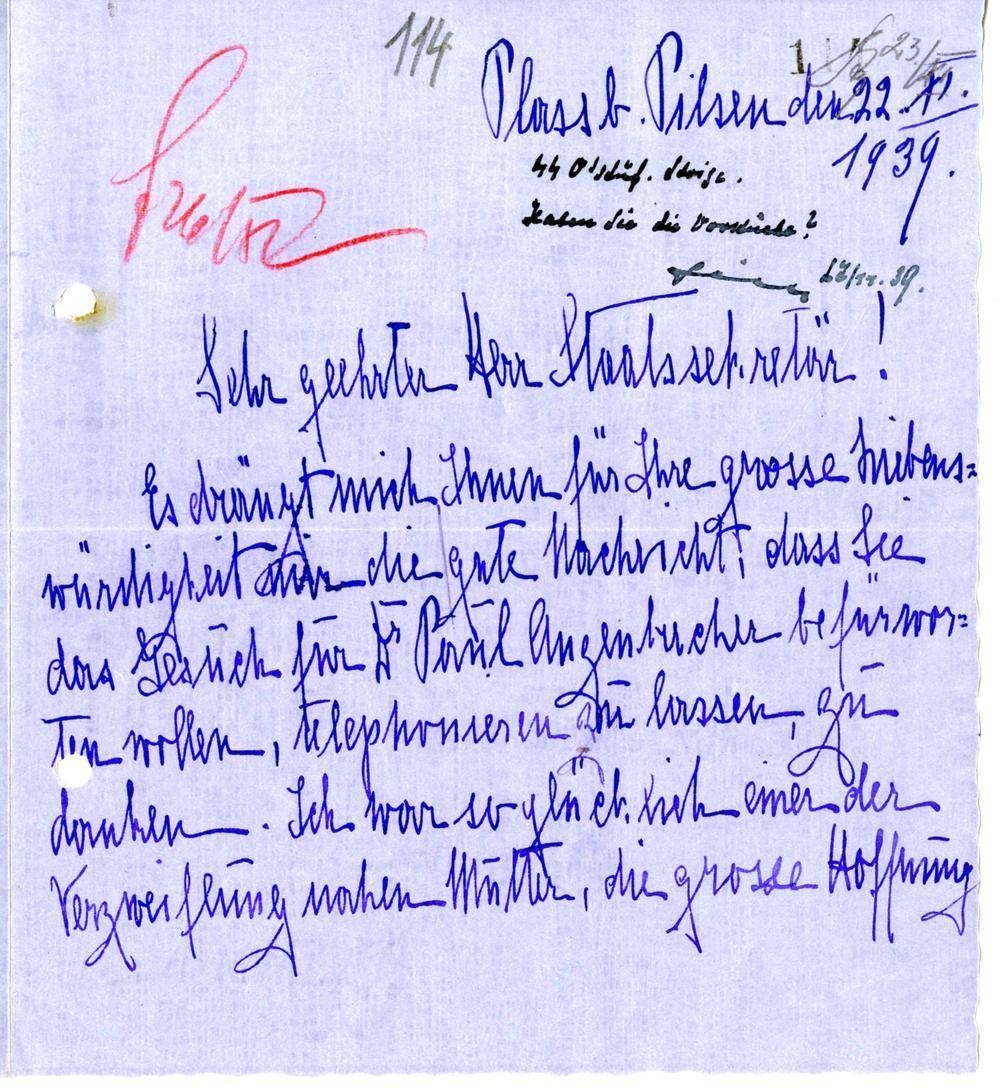 114
1
23/XI
Plass b. Pilsen den 22. XI.
1939.
SS O'stuf.
Haben Sie die Vorstücke?
27/11. 39.
Sehr geehrter Herr Staatssekretär!
Es drängt mich Ihnen für Ihre grosse Liebens=
würdigkeit mir die gute Nachricht, dass Sie
das Gesuch für Dr Paul Augenbucher befürwor=
ten wollen, telephonieren zu lassen, zu
danken. Ich war so glücklich einer der
Verzweiflung nahen Mutter, die grosse Hoffnung